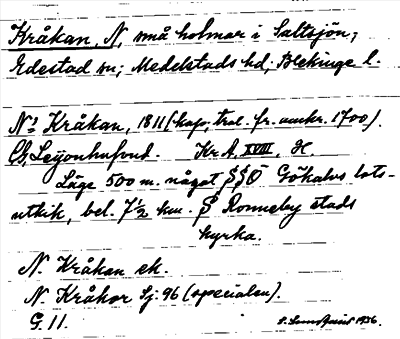 Kråkan, N, små holmar i Saltsjön;
Edestad sn; Medelstads hd; Blekinge l.
Na Kråkan, 1811 (kop, trol. fr. omkr. 1700).
Leijonhufvud. Kr. A. XVIII, H
Läge 500 m. något Gökalvs lots-
utkik, bel. 7½ km. Ronneby stads
kyrka.
N. Kråkan ek.
N. Kråkor Sj: 96 (specialen).
G. 11. 1936.